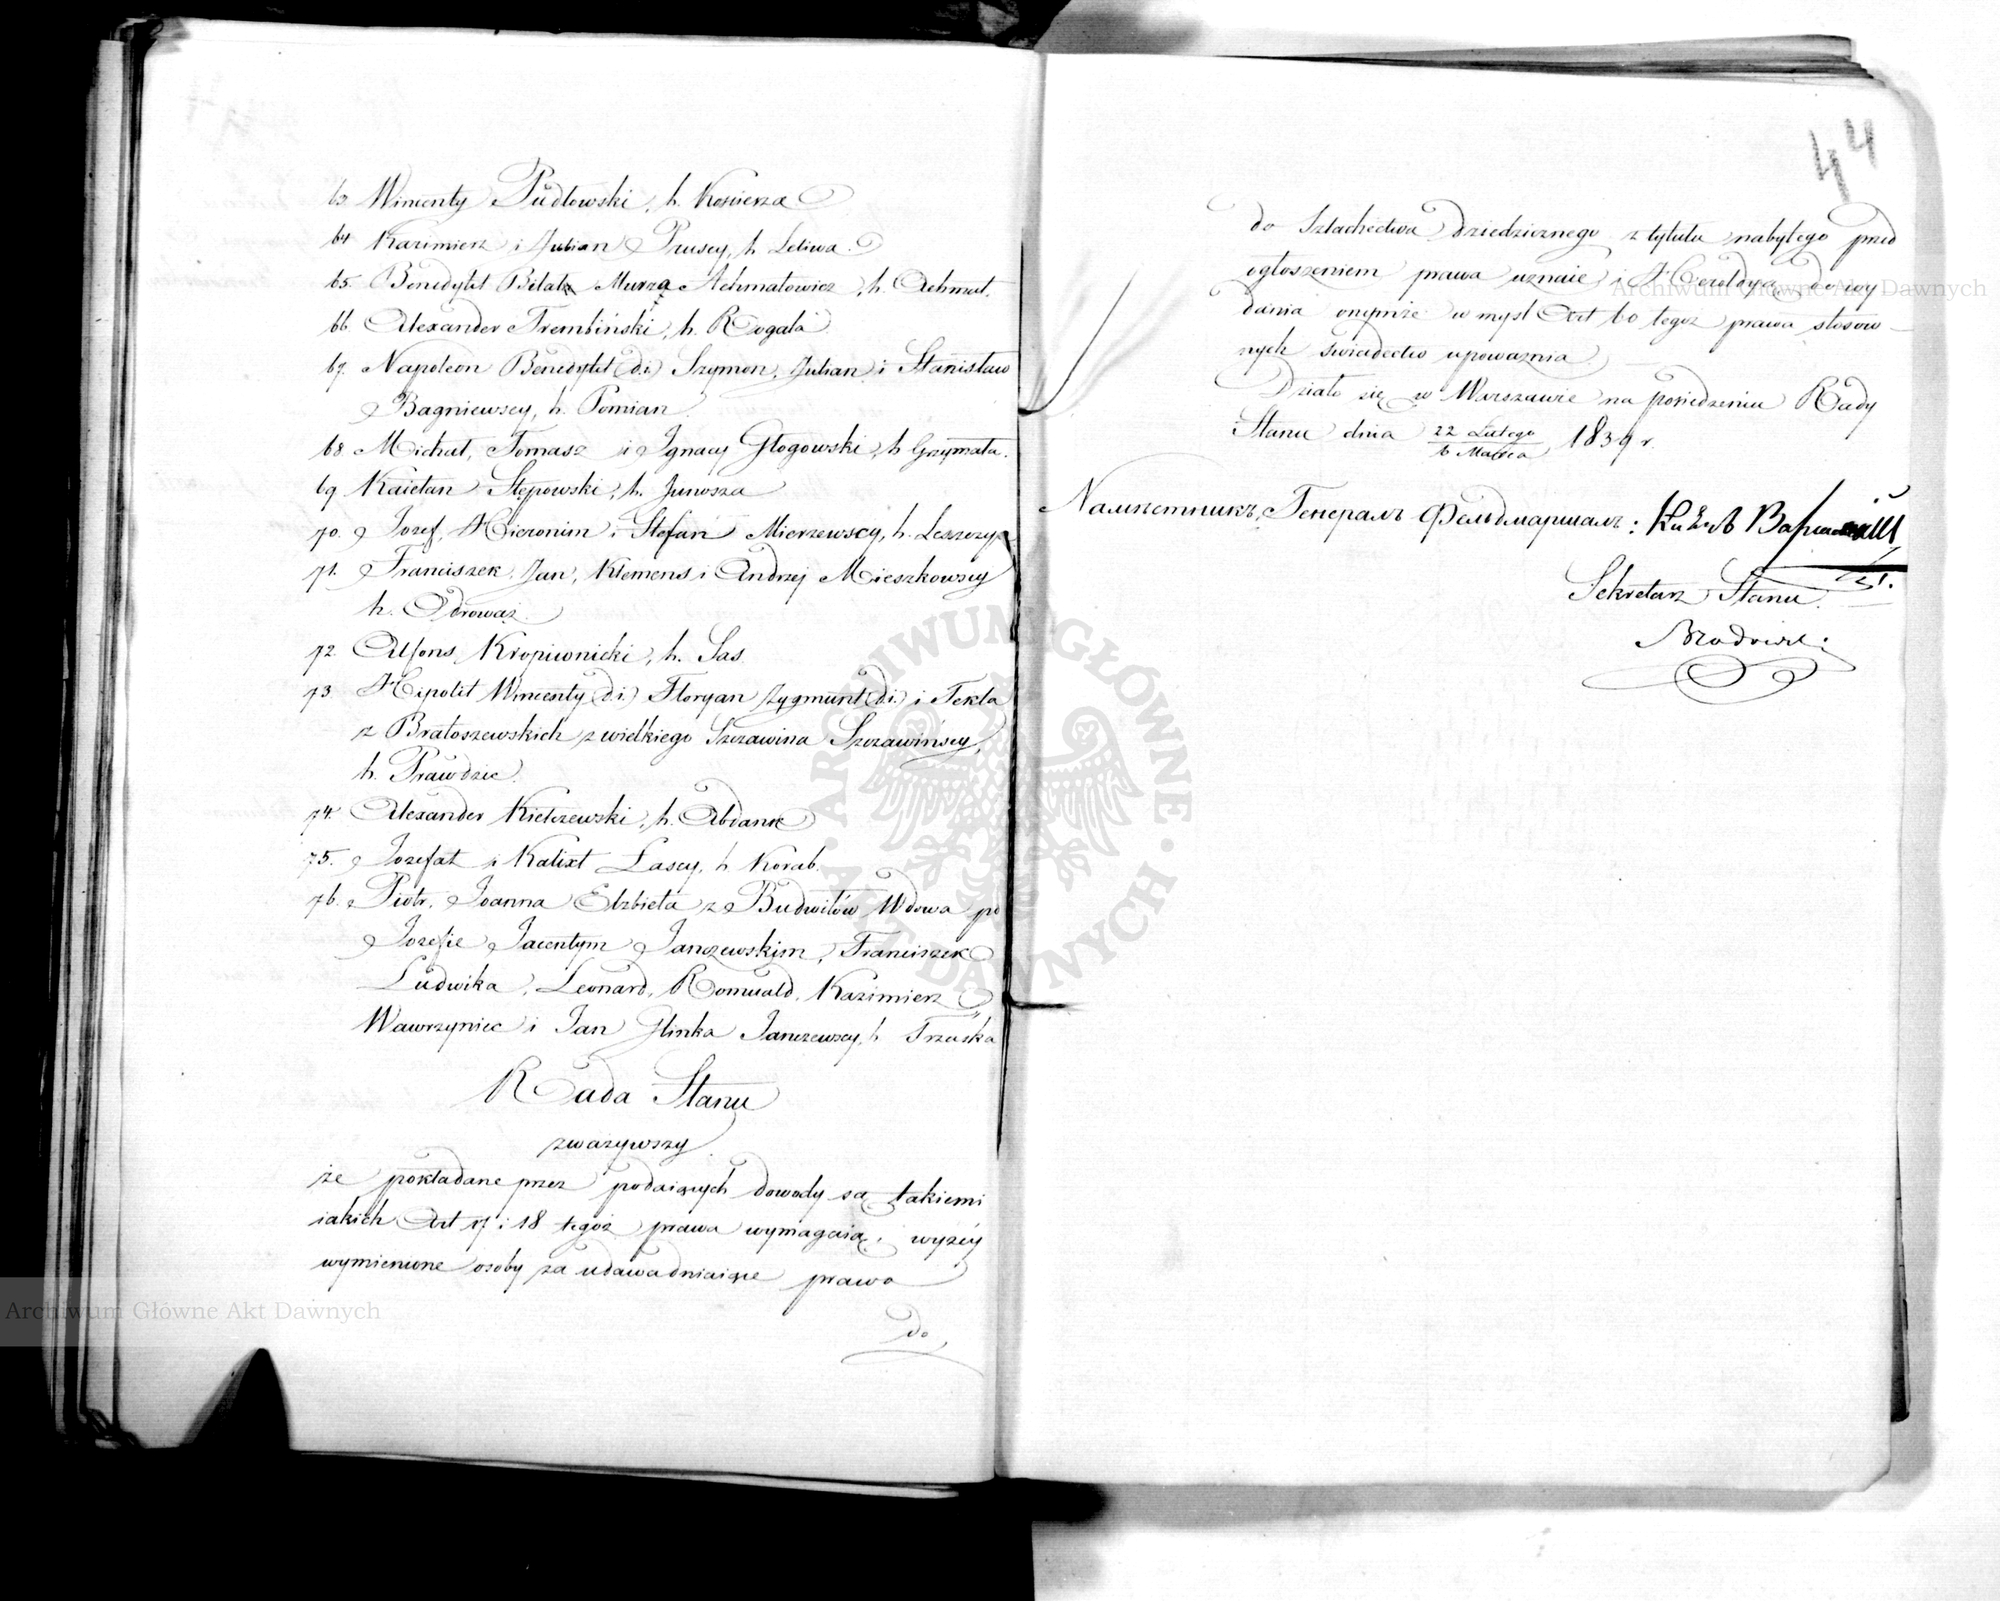 63 Wincenty Pudłowski, h. Kościerza
64 Kazimierz i Julian Pruscy, h. Leliwa.
65. Benedykt Bilał Murza Achmatowicz, h. Achmat.
66. Alexander Trembiński, h. Rogala
67. Napoleon Benedykt (d.i.) Szymon, Julian i Stanisław
Bagniewscy, h. Pomian.
68 Michał, Tomasz i Ignacy Głogowski, h Grzymała.
69 Kaietan Stępowski, h. Junosza
70. Jozef, Hieronim i Stefan Mierzewscy, h. Leszczyc
71. Franciszek, Jan, Klemens i Andrzej Mieszkowscy
h. Odrowąż.
72 Alfons Kropiwnicki, h. Sas.
73 Hipolit Wincenty (d.i.) Floryan Zygmunt (d.i.) i Tekla
z Bratoszewskich z wielkiego Szczawina Szczawińscy,
h. Prawdzic.
74. Alexander Kiełczewski, h. Abdank
75. Jozefat i Kalixt Łascy, h Korab.
76. Piotr, Joanna Elzbieta z Budwiłów Wdowa po
Jozefie Jacentym Janczewskim, Franciszek
Ludwika, Leonard, Romuald, Kazimierz
Wawrzyniec i Jan Glinka Janczewscy, h Trzaska
Rada Stanu
zważywszy.
że pokładane przez podaiących dowody są takiemi
iakich Art 17 i 18 tegoż prawa wymagaią, i wyżey
wymienione osoby za udowadniaiące prawo
do
44
do Szlachectwa dziedzicznego z tytułu nabytego przed
ogłoszeniem prawa uznaie i Heroldyą do wy
dania onymże w myśl Art 60 tegoż prawa stosow-
nych świadectw upoważnia.
Działo się w Warszawie na posiedzeniu Rady
Stanu dnia 22 Lutego / 6 Marca 1839 r.
Намѣстникъ, Генералъ Фельдмаршалъ: Князь Варшавскій
Sekretarz Stanu.
ARCHIWUM GŁÓWNE AKT DAWNYCH
Archiwum Główne Akt Dawnych
Archiwum Główne Akt Dawnych